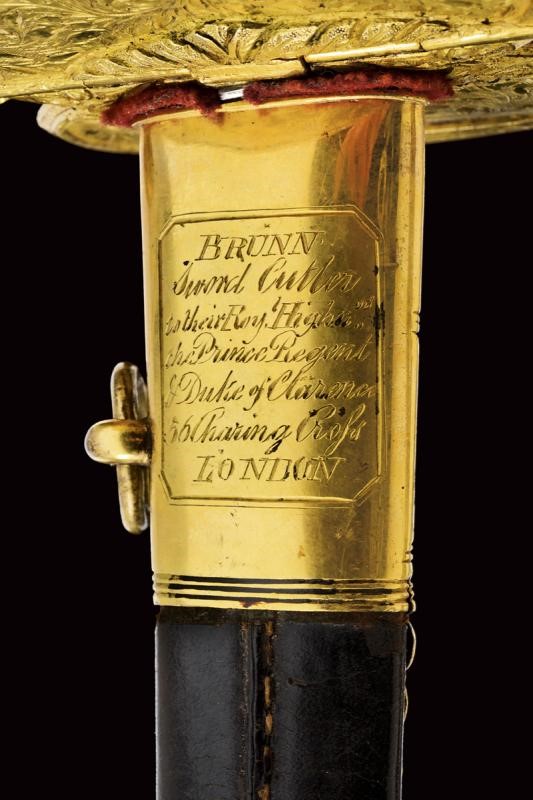 BRUNN
Sword Cutler
to their Roy.l Highn.ses
the Prince Regent
& Duke of Clarence
56 Charing Croſs
LONDON